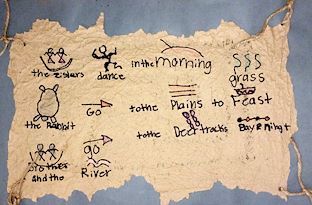 the sisters dance in the morning grass
the Rabbit Go to the Plains to Feast
to the Deer tracks Day & Night
brother and the go River